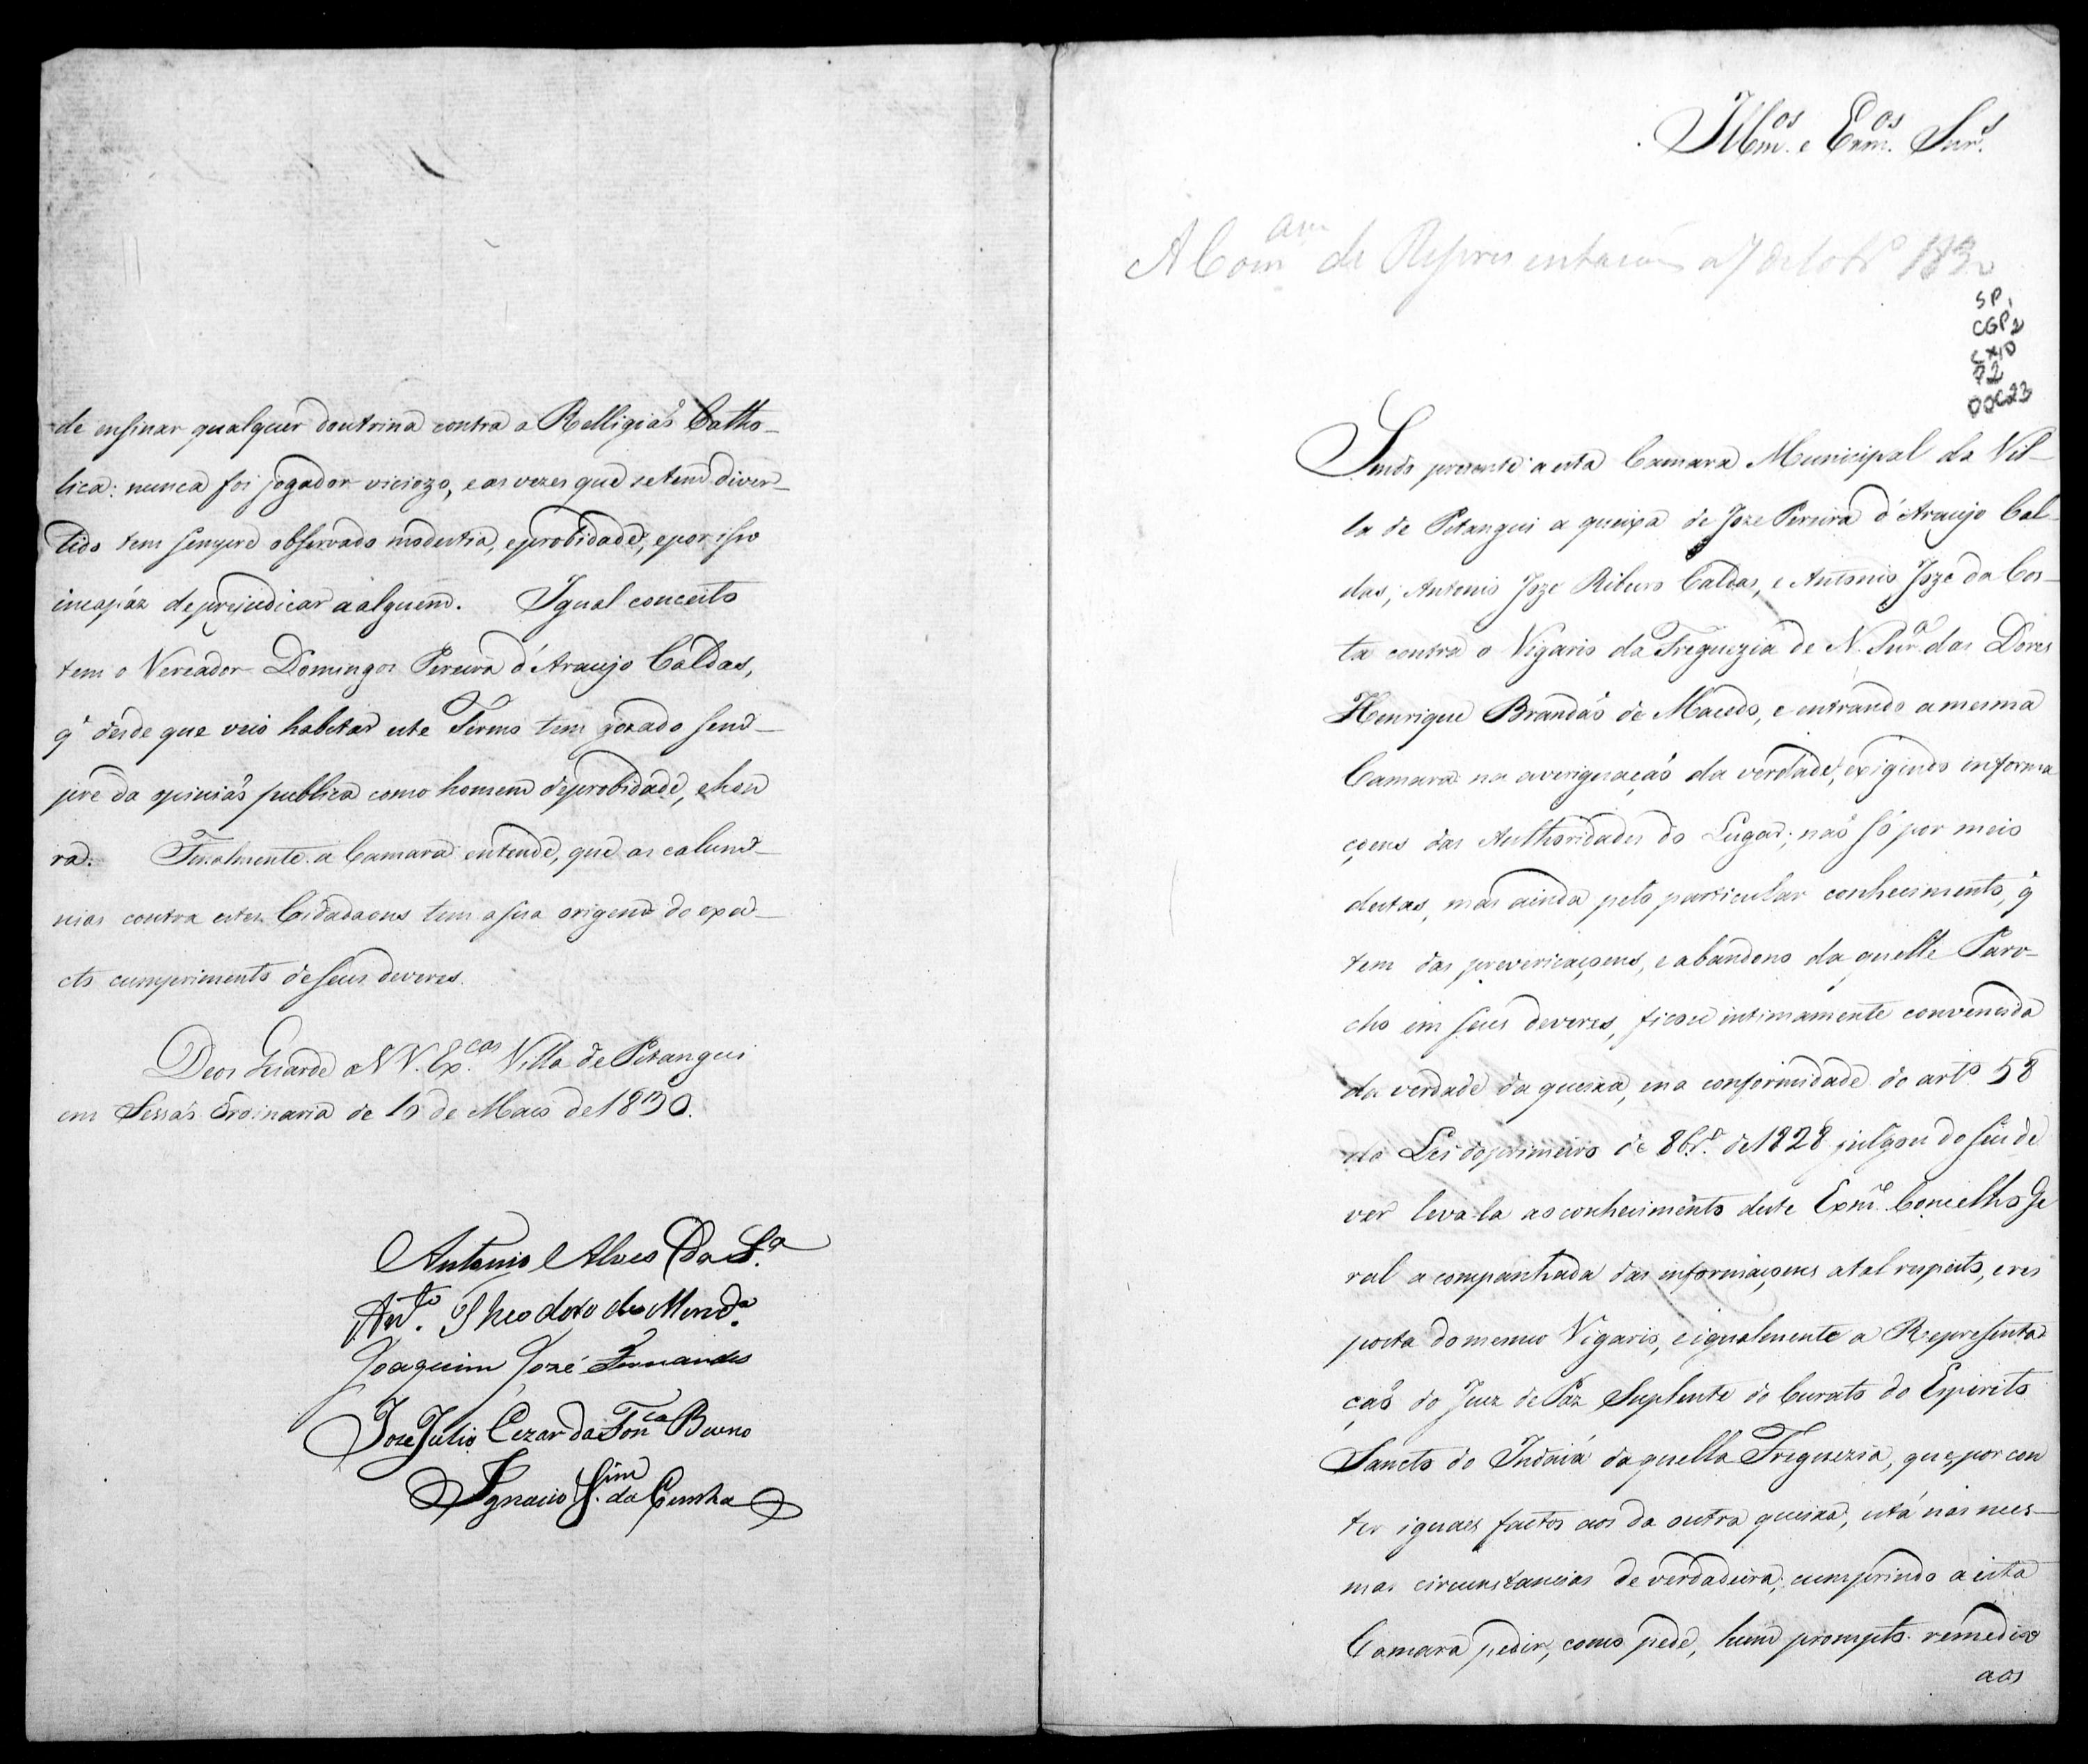 de ensinar qualquer doutrina contra a Relligiaõ Catho-
lica: nunca foi jogador viciozo, e as vezes que se tem diver-
tido tem sempre observado modestia, e probidade, e por isso
incapáz de prejudicar a alguem. Igual conceito
tem o Vereador Domingos Pereira d'Araujo Caldas,
q̃ desde que veio habitar este Termo tem gozado sem-
pre da opiniaõ publica como homem de probidade, e hon
ra. Finalmente a Camara entende, que as calum-
nias contra estes Cidadaons tem a sua origem do exa-
cto cumprimento de seus deveres.
Deos Guarde a V V. Ex.cas Villa de Pitangui
em Sessaõ Ordinaria de 15 de Maio de 1830.
Antonio Alves da S.a
Ant.o Theodoro de Mend.a
Joaquim José Fernandes
Joze Julio Cezar da Fon.ca Bueno
Ignacio da Cunha
Illm.os e Exm.os Snr.s
A Com.am de Representaçoẽs 1830
SP,
CGP2
CX10
P2
DOC23
Sendo presente a esta Camara Municipal da Vil-
la de Pitangui a queixa de Joze Pereira d'Araujo Cal-
das, Antonio Joze Ribeiro Caldas, e Antonio Joze da Cos-
ta contra o Vigario da Freguezia de N. Snr.a das Dores
Henrique Brandaõ de Macedo, e entrando a mesma
Camara na averiguaçaõ da verdade, exigindo informa
çoens das Authoridades do Lugar; naõ só por meio
destas, mas ainda pelo particular conhecimento, q̃
tem das prevericaçoens, e abandono daquelle Paro-
cho em seus deveres, ficou intimamente convencida
da verdade da queixa, e na conformidade do art.o 58
da Lei do primeiro de 8br.o de 1828 julgou do seu de
ver leva-la ao conhecimento deste Exm.o Concelho Ge
ral acompanhada das informaçoens a tal respeito, e res
posta do mesmo Vigario, e igualmente a Representa
çaõ do Juiz de Paz Suplente do Curato do Espirito
Sancto do Indaiá daquella Freguezia, que, por con
ter iguaes factos aos da outra queixa, está nas mes-
mas circunstancias de verdadeira; cumprindo a esta
Camara pedir, como pede, hum prompto remedio
aos